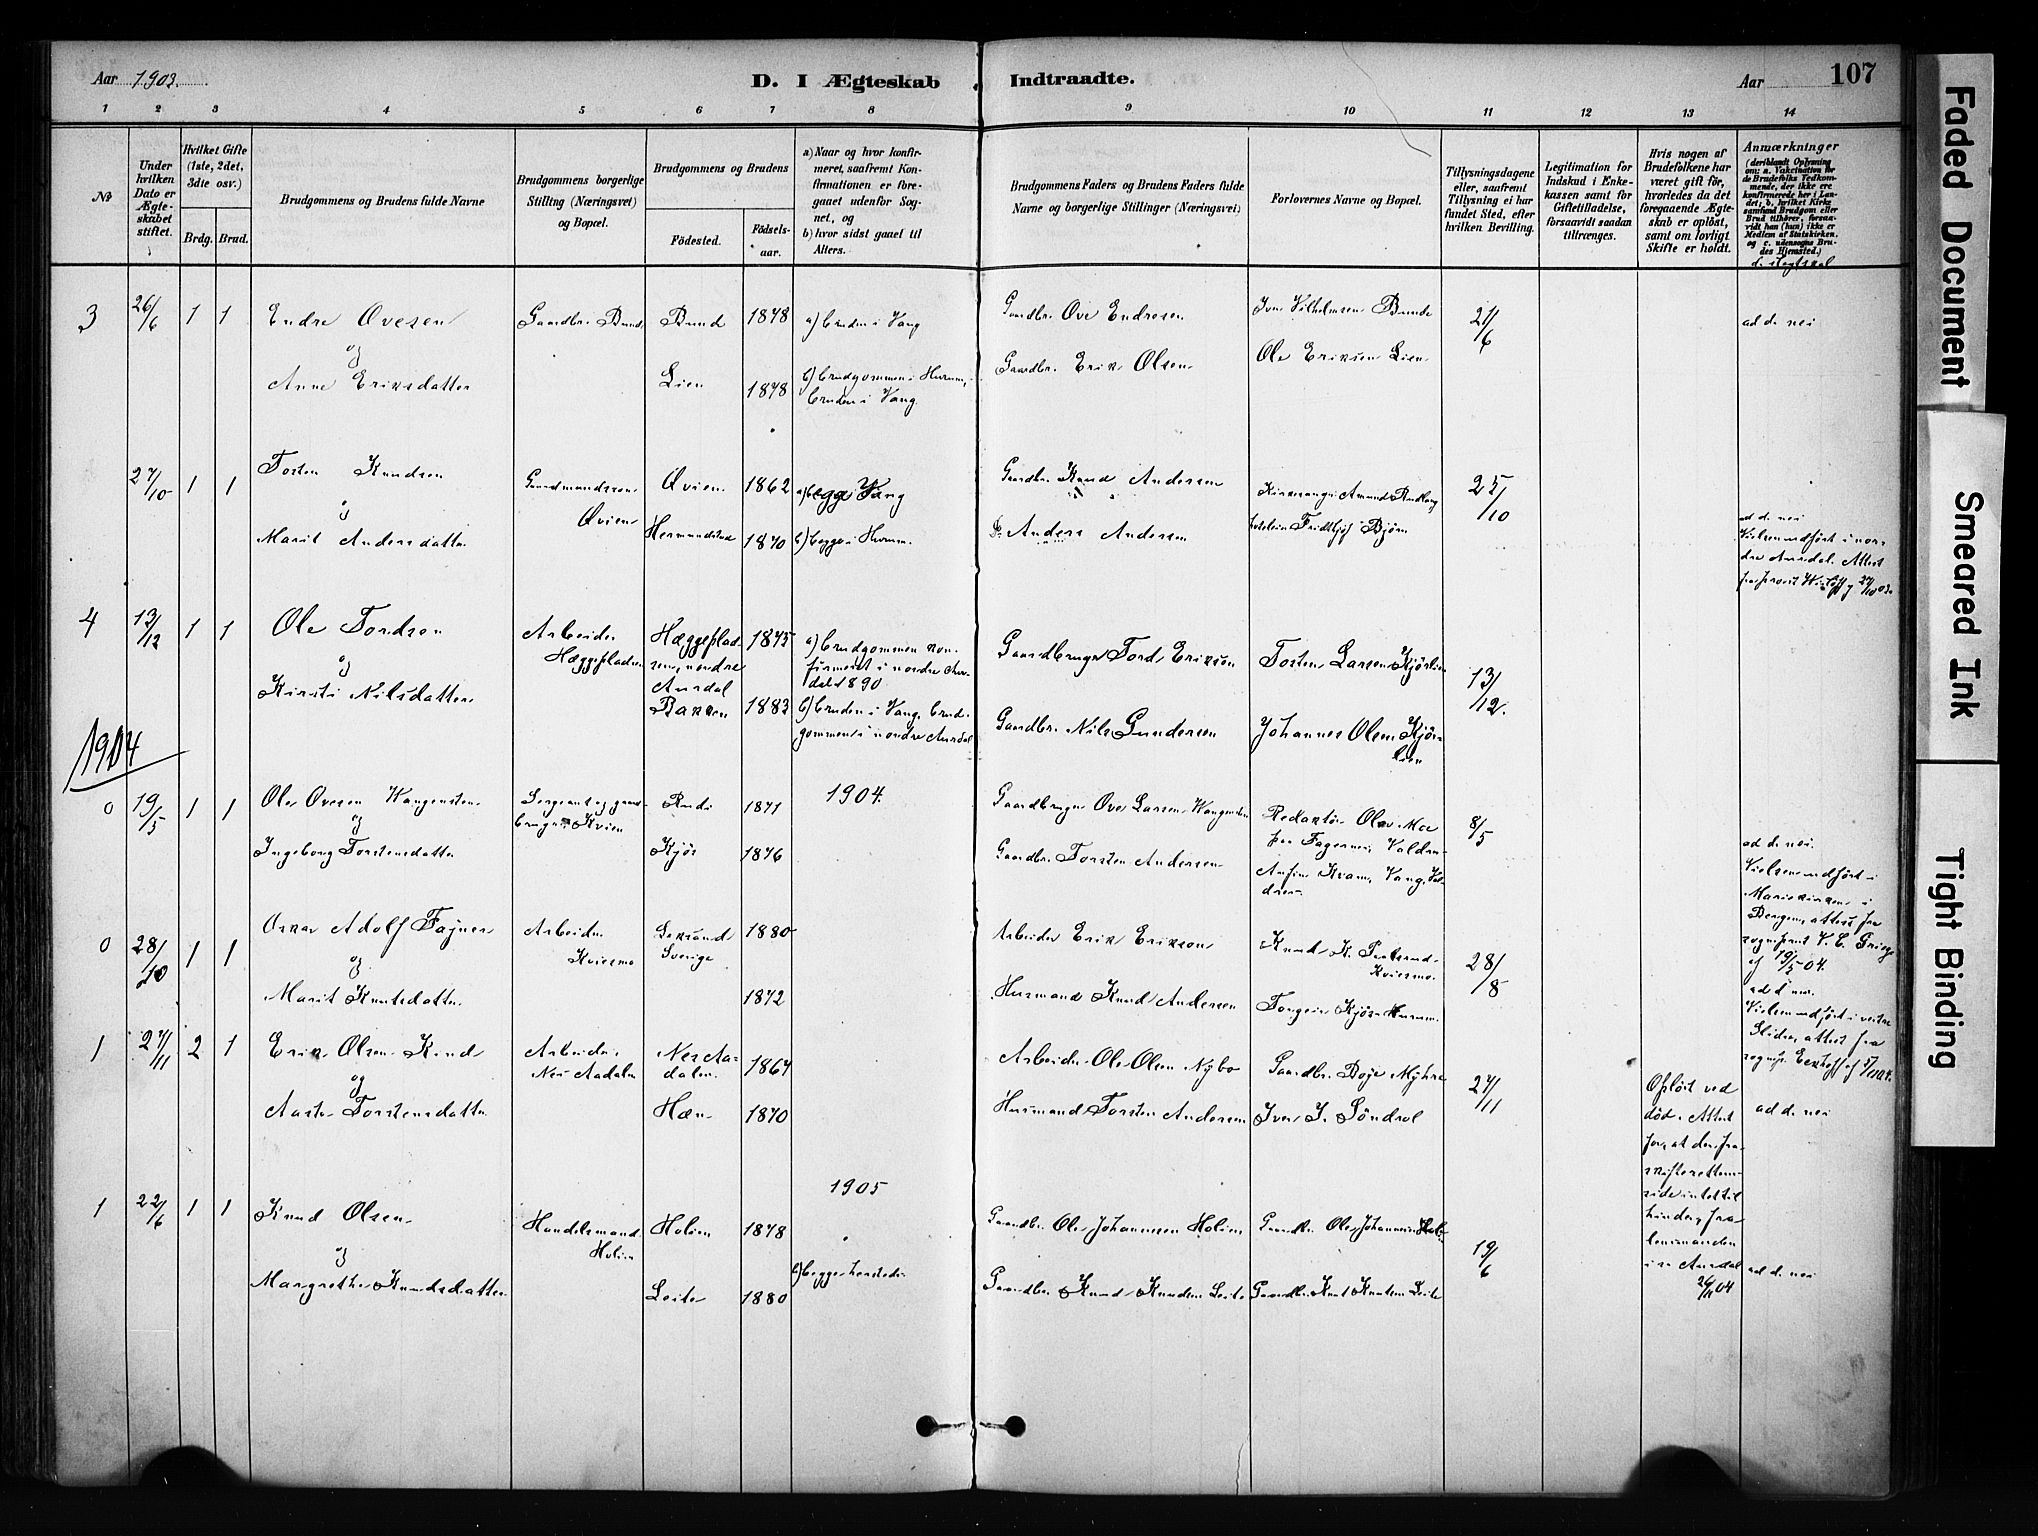 Aar 1903.
D. I Ægteskab Indtraadte.
Aar
107
1 2 3 4 5 6 7 8 9 10 11 12 13 14
№
Under hvilken Dato er Ægteskabet stiftet.
Hvilket Gifte (1ste, 2det, 3die osv.)
Brdg. Brud.
Brudgommens og Brudens fulde Navne
Brudgommens borgerlige Stilling (Næringsvei) og Bopæl.
Brudgommens og Brudens
Födested.
Födselsaar.
a) Naar og hvor konfirmeret, saafremt Konfirmationen er foregaaet udenfor Sognet, og
b) hvor sidst gaaet til Alters.
Brudgommens Faders og Brudens Faders fulde Navne og borgerlige Stillinger (Næringsvei)
Forlovernes Navne og Bopæl.
Tillysningsdagene eller, saafremt Tillysning ei har fundet Sted, efter hvilken Bevilling.
Legitimation for Indskud i Enkekassen samt för Giftetilladelse, forsaavidt saadan tiltrænges.
Hvis nogen af Brudefolkene har været gift för, hvorledes da det foregaaende Ægteskab er oplöst, samt om lovligt Skifte er holdt.
Anmærkninger
(deriblandt Oplysning om: a. Vakcination för de Brudefolks Vedkommende, der ikke ere konfirmerede her i Landet; b. hvilket Kirkesamfund Brudgom eller Brud tilhörer, forsaavidt han (hun) ikke er Medlem af Statskirken, og c. udensogns Brudes Hjemsted.)
d. slegtskab
3 26/6 1 1 Endre Ovesen Gaardbr. Bunde Bund 1878 a) bruden i Vang Gaardbr. Ove Endresen Iver Vilhelmsen Bunde 21/6 ad d. nei
og
Anne Eriksdatter Lien 1878 b) brudgommen i Hurum, bruden i Vang. Gaardbr. Erik Olsen Ole Eriksen Lien
27/10 1 1 Tosten Knudsen Gaardmandssøn Øvien Øvien 1862 a) begge i Vang Gaardbr. Knud Andersen Kirkesanger Amund 25/10
og
Marit Andersdatter Hermundstad 1870 b) begge i Hurum. Anders Andersen Fridtjof Bjørn
ad d. nei
Vielsen udført i nordre Aurdal. Attest fra provst 27/10 03.
4 13/12 1 1 Ole Tordsen Arbeider Hæggepladen Hæggepladsen, nordre Aurdal 1875 a) brudgommen konfirmeret i nordre Aurdal 1890 Gaardbruger Tord Erikson Tosten Larsen Kjørlien 13/12.
og
Kirsti Nilsdatter Bakken 1883 b) bruden i Vang, brudgommen i nordre Aurdal Gaardbr. Nils Gundersen Johannes Olsen Kjørlien
1904
1904.
0 19/5 1 1 Ole Ovesen Wangensten Sergeant og gaardbruger Kvien Rudi 1871 Gaardbruger Ove Larsen Wangensten Redaktør Olav Moe paa Fagernes, Valdres 8/5
og
Ingeborg Torstensdatter Kjøs 1876 Gaardbr. Torsten Andersen Anfin Kvam, Vang, Valdres
ad d. nei.
Vielsen udført i Mariekirken i Bergen, attest fra sognprest V. C. Grieg af 19/5 04.
0 28/10 1 1 Oskar Adolf Fajner Arbeider Kviesmo Leksand Sverige 1880 Arbeider Erik Erikson Knud K. Kviesmo. 28/8
og
Marit Knutsdatter 1872 Husmand Knud Andersen Torgeir Kjøs Hurum.
ad d. nei.
Vielsen udført i vestre Slidre, attest fra sognepr.
1 27/11 2 1 Erik Olsen Arbeider Nes Aadalen Nes Aadalen 1864 Arbeider Ole Olsen Nybo Gaardbr. Boje Myhre 27/11
og
Aaste Torstensdatter Hæn 1870 Husmand Torsten Andersen Iver I. Søndrol
Opløst ved død. Attest for, at der fra skifterettens side intet til hinder, fra lensmanden i sø. Aurdal 26/11 04
ad d. nei
1905
1 22/6 1 1 Knud Olsen Handelsmand Holien Holien 1878 Gaardbr. Ole Johannesen Holien Gaardbr. Ole Johannesen Holien 19/6
og
Margrethe Knudsdatter Leite 1880 b) begge hersteds Gaardbr. Knud Knudsen Leite Gaardbr. Knut Knutsen Leite
ad d. nei
Faded Document
Smeared Ink
Tight Binding